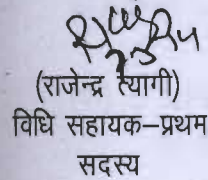 (राजेन्द्र त्यागी)
विधि सहायक–प्रथम
सदस्य